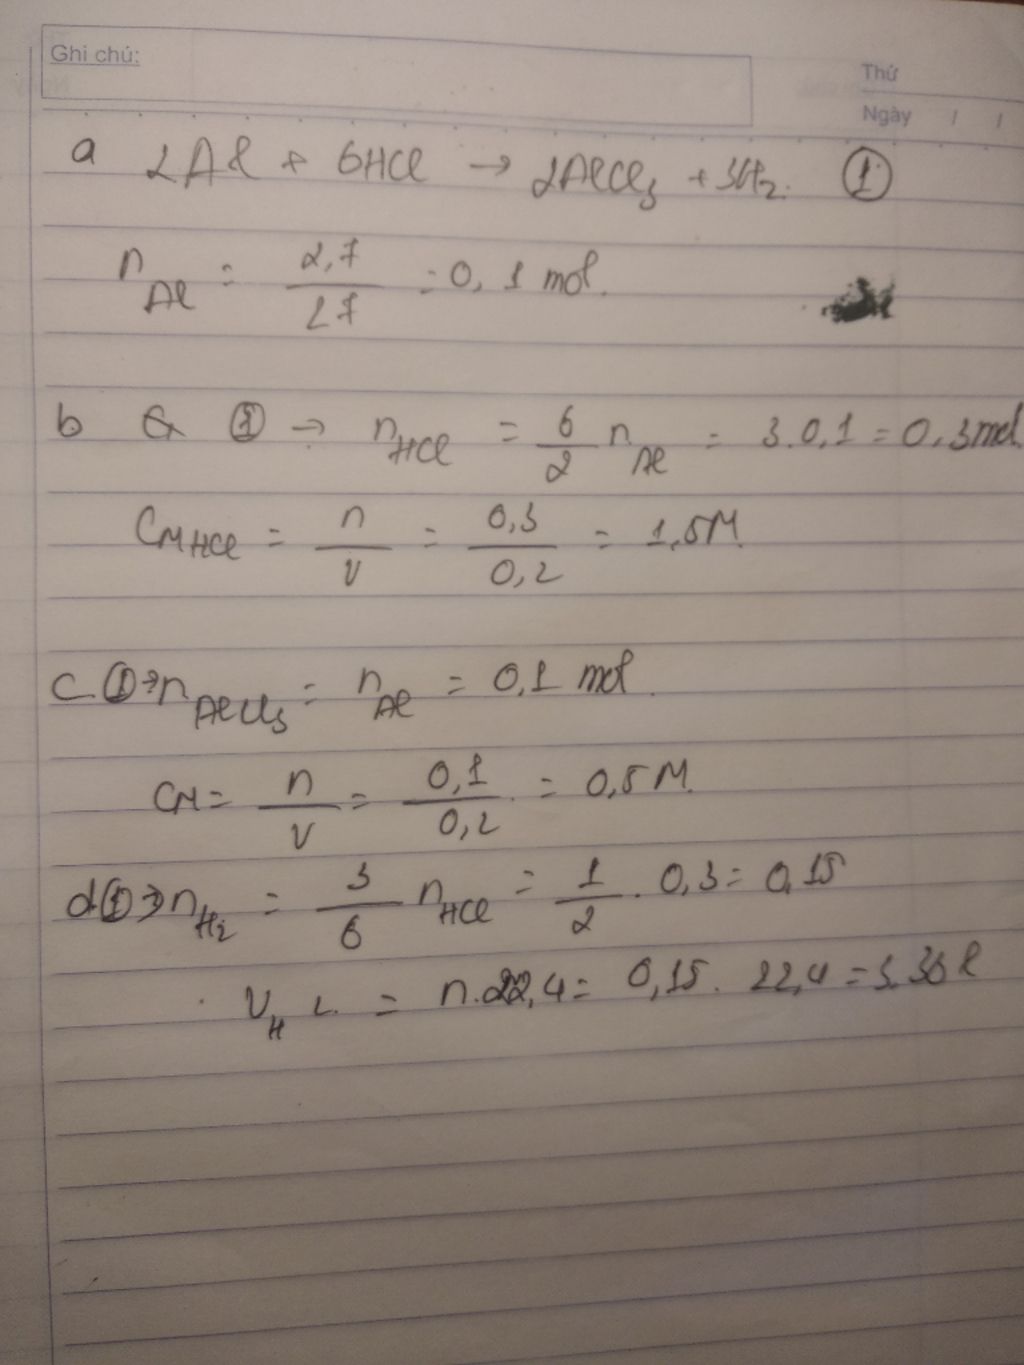 Ghi chú:
Thứ
Ngày / /
a 2Al + 6HCl → 2AlCl3 + 3H2. ①
nAl = 2,7 / 27 = 0,1 mol.
b ① → nHCl = 6/2 nAl = 3.0,1 = 0,3mol
CMHCl = n/V = 0,3/0,2 = 1,5M
c. ① → nAlCl3 = nAl = 0,1 mol.
CM = n/V = 0,1/0,2 = 0,5M.
d ① → nH2 = 3/6 nHCl = 1/2 . 0,3 = 0,15
VH2 = n.22,4 = 0,15. 22,4 = 3.36l